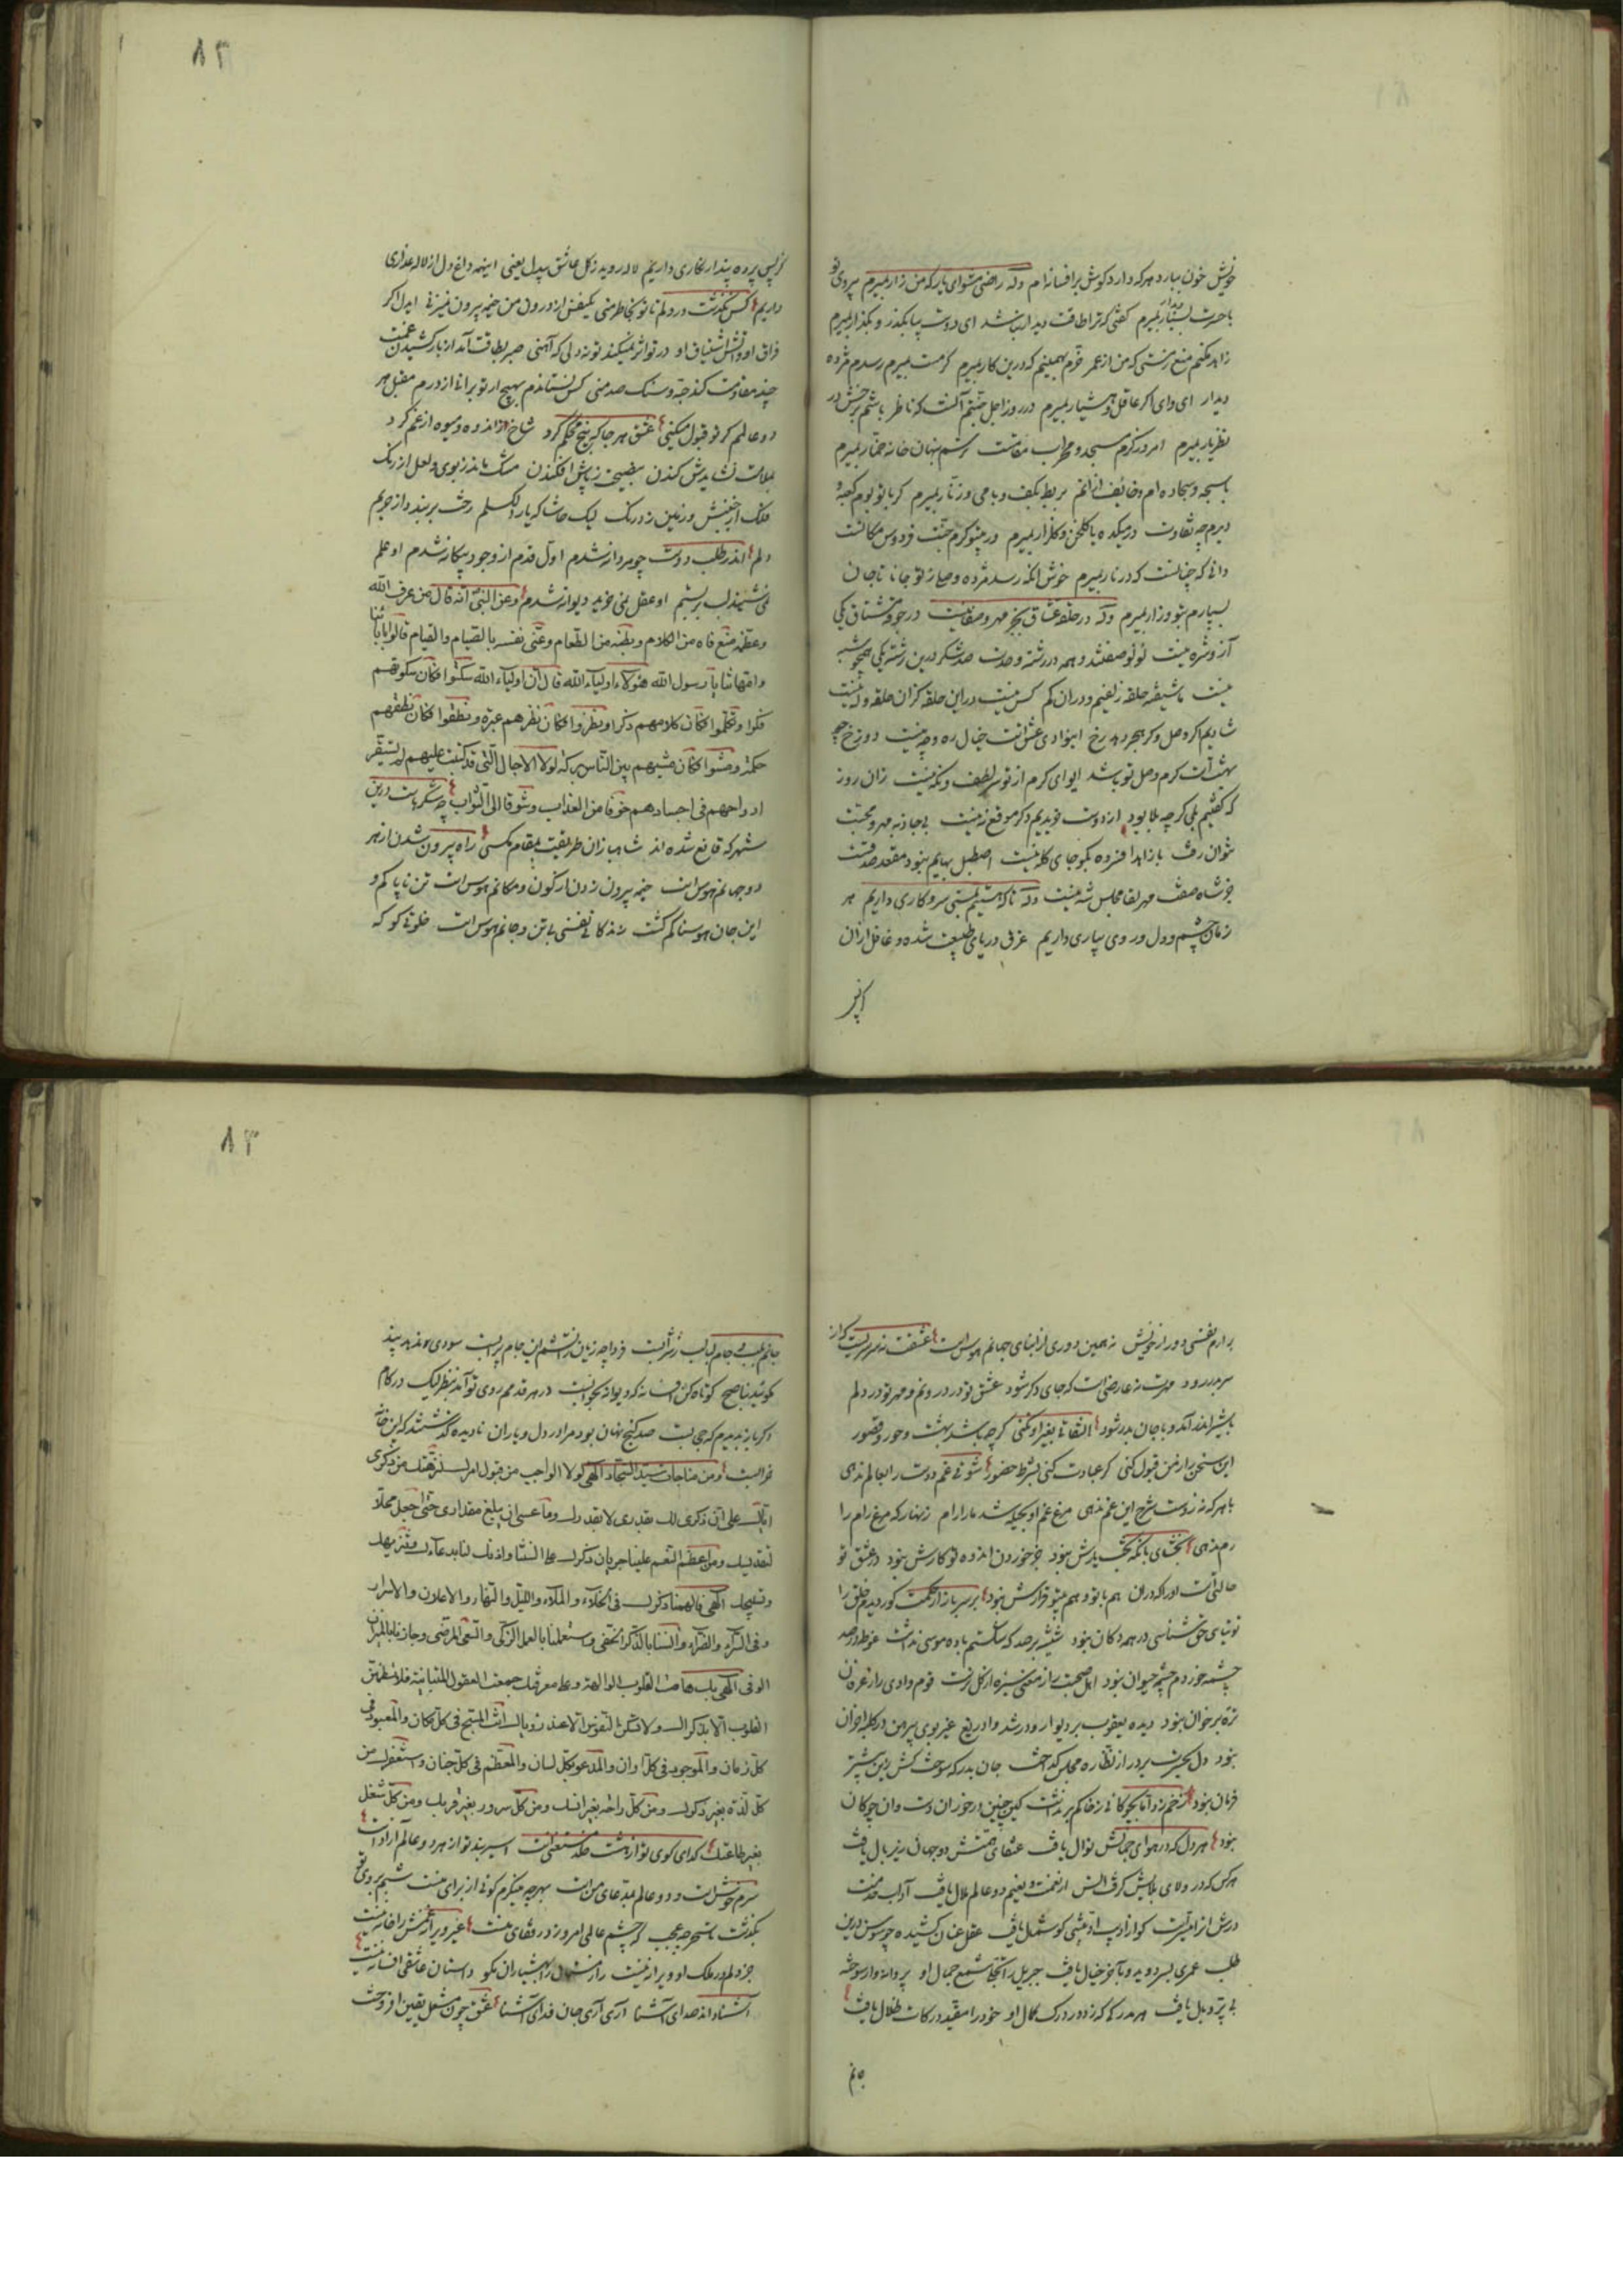 خویش خون ببارد هر که دارد گوش بر افسانه‌ام وله راضی مشو ای یار که من زار بمیرم بی روی تو
با حسرت بسیار بمیرم گفتی که ترا طاقت دیدار نباشد ای دوست بیا بگذر و بگذار بمیرم
زاهد مکنم منع ز مستی که من از عمر خرم بهمینم که درین کار بمیرم گر مست بمیرم رسدم مژده
دیدار ای وای اگر عاقل و هشیار بمیرم در روز اجل جنتم آنست که ناظر باشم برخش در
نظر یار بمیرم امروز گرم مسجد و محراب مقامست ترسم بنهان خانه خمار بمیرم
با سبحه و سجاده‌ام و خائف از آنم بربط بکف و با می و زنار بمیرم گر با تو بوم کعبه و
دیرم چه تفاوت در میکده یا گلخن و گلزار بمیرم در بیتو گرم جنت فردوس مکانست
دانی که چنانست که در نار بمیرم خوش آنکه رسد مژده وصل از تو جانا تا جان
بسپارم بتو و زار بمیرم وله در حلقه عشاق بجز مهر و صفا نیست در جوقه مشتاق یکی
از و شره نیست لؤلؤ صفتند و همه در رشته وحدت صد شکر درین رشته یکی همچو شبه
نیست ما شیفته حلقه زلفیم و در آن کم کس نیست در این حلقه کزان حلقه وله نیست
شادیم اگر وصل و گر هجر دهد رخ در وادی عشق است خیال ره و چه نیست دوزخ چو
بهشت است گرم وصل تو باشد ای وای گرم از تو سر لطف و نگه نیست زان روز
که گفتیم بلی گرچه بلا بود از دوست ندیدیم دگر موقع زه نیست بی جاذبه مهر و محبت
نتوان رفت با زاهد افسرده بگو جای گله نیست اصطبل بهایم نبود مقعد صدقست
جز شاه صف مهر لقا مجلس شه نیست وله تا که هستیم بمستی سر و کاری داریم هر
زمان چشم و دل و روی بیاری داریم غرق دریای طبیعت شده و غافل از آن
۸۲
کز پس پرده پندار نگاری داریم لاله روید ز گل عاشق بیدل یعنی اینهمه داغ دل از لاله عذاری
داریم کس نگذشت در دلم تا تو بخاطر منی یکنفس از درون من خیمه برون نمیزنی ایدل اگر
فراق او و آتش اشتیاق او در تو اثر نمیکند تو نه دلی که آهنی صبر بطاقت آمد از بار کشیدن غمت
چند مقاومت کند حبه و سنگ صد منی کس نستاندم بهیچ ار تو برانی از درم مقبل هر
دو عالمم گر تو قبول میکنی عشق هر جا که بیخ محکم کرد شاخ از اندوه و میوه از غم کرد
بملامت نشایدش کندن بنصیحت ز پاش افکندن مشک ماند ز بوی و لعل از رنگ
فلک از جنبش و زمین ز درنگ لیک حاشا که یار بگسلم رخت بربندد از حریم
دلم اندر طلب دوست چو مردانه شدم اول قدم از وجود بیگانه شدم او علم
نمیشنید لب بر بستم او عقل نمی خرید دیوانه شدم وعن النبی انه قال من عرف الله
وعظمه منع فاه من الکلام وبطنه من الطعام وعنی نفسه بالصیام والقیام قالوا بابائنا
وامهاتنا یا رسول الله هؤلاء اولیاء الله قال ان اولیاء الله سکتوا فکان سکوتهم
فکرا وتکلموا فکان کلامهم ذکرا ونظروا فکان نظرهم عبرة ونطقوا فکان نطقهم
حکمة ومشوا فکان مشیهم بین الناس برکة لولا الاجال التی قد کتبت علیهم لم تستقر
ارواحهم فی اجسادهم خوفا من العذاب وشوقا الی الثواب چه شکرهاست درین
شهر که قانع شده‌اند شاهبازان طریقت بمقام مگسی راه بیرون شدن از هر
دو جهانم هوس است خیمه بیرون زدن از کون و مکانم هوس است تن ناپاکم و
این جان هوسناکم کشت زندگانی نفسی بی تن و جانم هوس است خلوتی کو که
برآرم نفسی دور از خویش نه همین دوری از ابنای جهانم هوس است عشقت نه سریست که از
سر بدر رود مهرت نه عارضی است که جای دگر شود عشق تو در درونم و مهر تو در دلم
با شیر اندر آمد و با جان بدر شود التفاتی بغیر او نکنی گر چه باشد بهشت و حور و قصور
این سخن را ز من قبول کنی گر عبادت کنی بشرط حضور شوقی غم دوست را بعالم ندهی
با هر که نه زوست شرح این غم ندهی مرغ غم او بحیله شد ما را رام زنهار که مرغ رام را
رم ندهی بخشای بانکه بخت یارش نبود جز خوردن اندوه تو کارش نبود در عشق تو
حالتیست او را که در آن هم با تو و هم بیتو قرارش نبود بر سر بازار حکمت کور دیدم خلق را
توتیای حق شناسی در همه دکان نبود
چشمه خوردم چشمه حیوان نبود
بنود دل بحیرت
فرمان نبود
بنود هر دل که در هوای جمالش نوال یافت عنقای همتش دو جهان زیر بال یافت
هر کس که در ولای بلایش گرفت انس از نعمت و نعیم دو عالم ملال یافت آداب خدمت
طلب عمری بسر دوید و بآخر خیال یافت جبریل را نتیجه شمع جمال او پروانه وار سوخته
بی پر و بال یافت هر مدرکه که زد در درک کمال او خود را مقید درکات ظلال یافت
۸۳
جانم بلب و جام لبالب ز شرابست
بگوئید بناصح کوتاه کن افسانه که دیوانه بخوابست در هر قدمم روی تو آمد بنظر لیک در کام
صد گنج نهان بود مرا در دل و یاران نادیده گذشتند که این خانه
خرابست ومن مناجات سید السجاد الهی لولا الواجب من قبول امرک لنزهتک من ذکری
ایاک علی ان ذکری لک بقدری لا بقدرک وما عسی ان یبلغ مقداری حتی اجعل محلا
لتقدیسک ومن اعظم النعم علینا جریان ذکرک علی السنتنا واذنک لنا بدعائک وتنزیهک
وتسبیحک الهی فالهمنا ذکرک فی الخلاء والملاء واللیل والنهار والاعلان والاسرار
وفی السراء والضراء وانسنا بالذکر الخفی واستعملنا بالعمل الزکی والسعی المرضی وجازنا بالمیزان
الوفی الهی بک هامت القلوب الوالهة وعلی معرفتک جمعت العقول المتباینة فلا تطمئن
القلوب الا بذکراک ولا تسکن النفوس الا عند رؤیاک انت المسبح فی کل مکان والمعبود فی
کل زمان والموجود فی کل اوان والمدعو بکل لسان والمعظم فی کل جنان واستغفرک من
کل لذة بغیر ذکرک ومن کل راحة بغیر انسک ومن کل سرور بغیر قربک ومن کل شغل
بغیر طاعتک گدای کوی تو از هشت خلد مستغنی است اسیر بند تو از هر دو عالم آزاد است
سرم خوش است و دو عالم بمدعای من است بهر چه مینگرم گوئی از برای منست
بگذشت
جز دلم در ملک او ویرانه نیست راز مستان را بهشیاران مگو داستان عاشقی افسانه نیست
آشنا داند صدای آشنا آری آری جان فدای آشنا عشق چون مشعل یقین افروخت